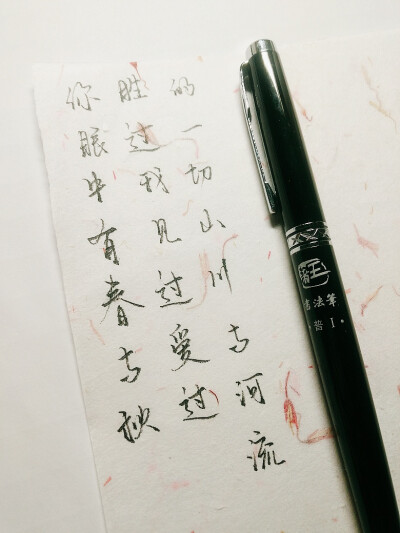 你眼中有春与秋
胜过我见过爱过
的一切山川与河流
書法筆